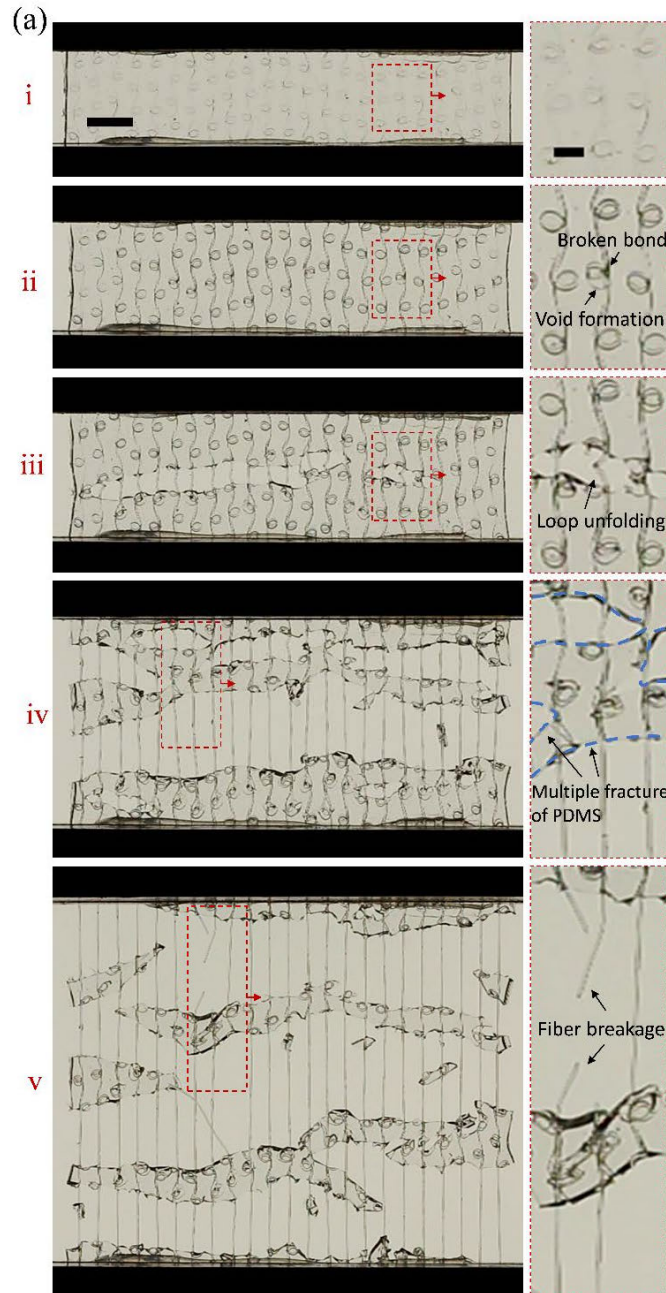 (a)
i
ii
Broken bond
Void formation
iii
Loop unfolding
iv
Multiple fracture
of PDMS
v
Fiber breakage